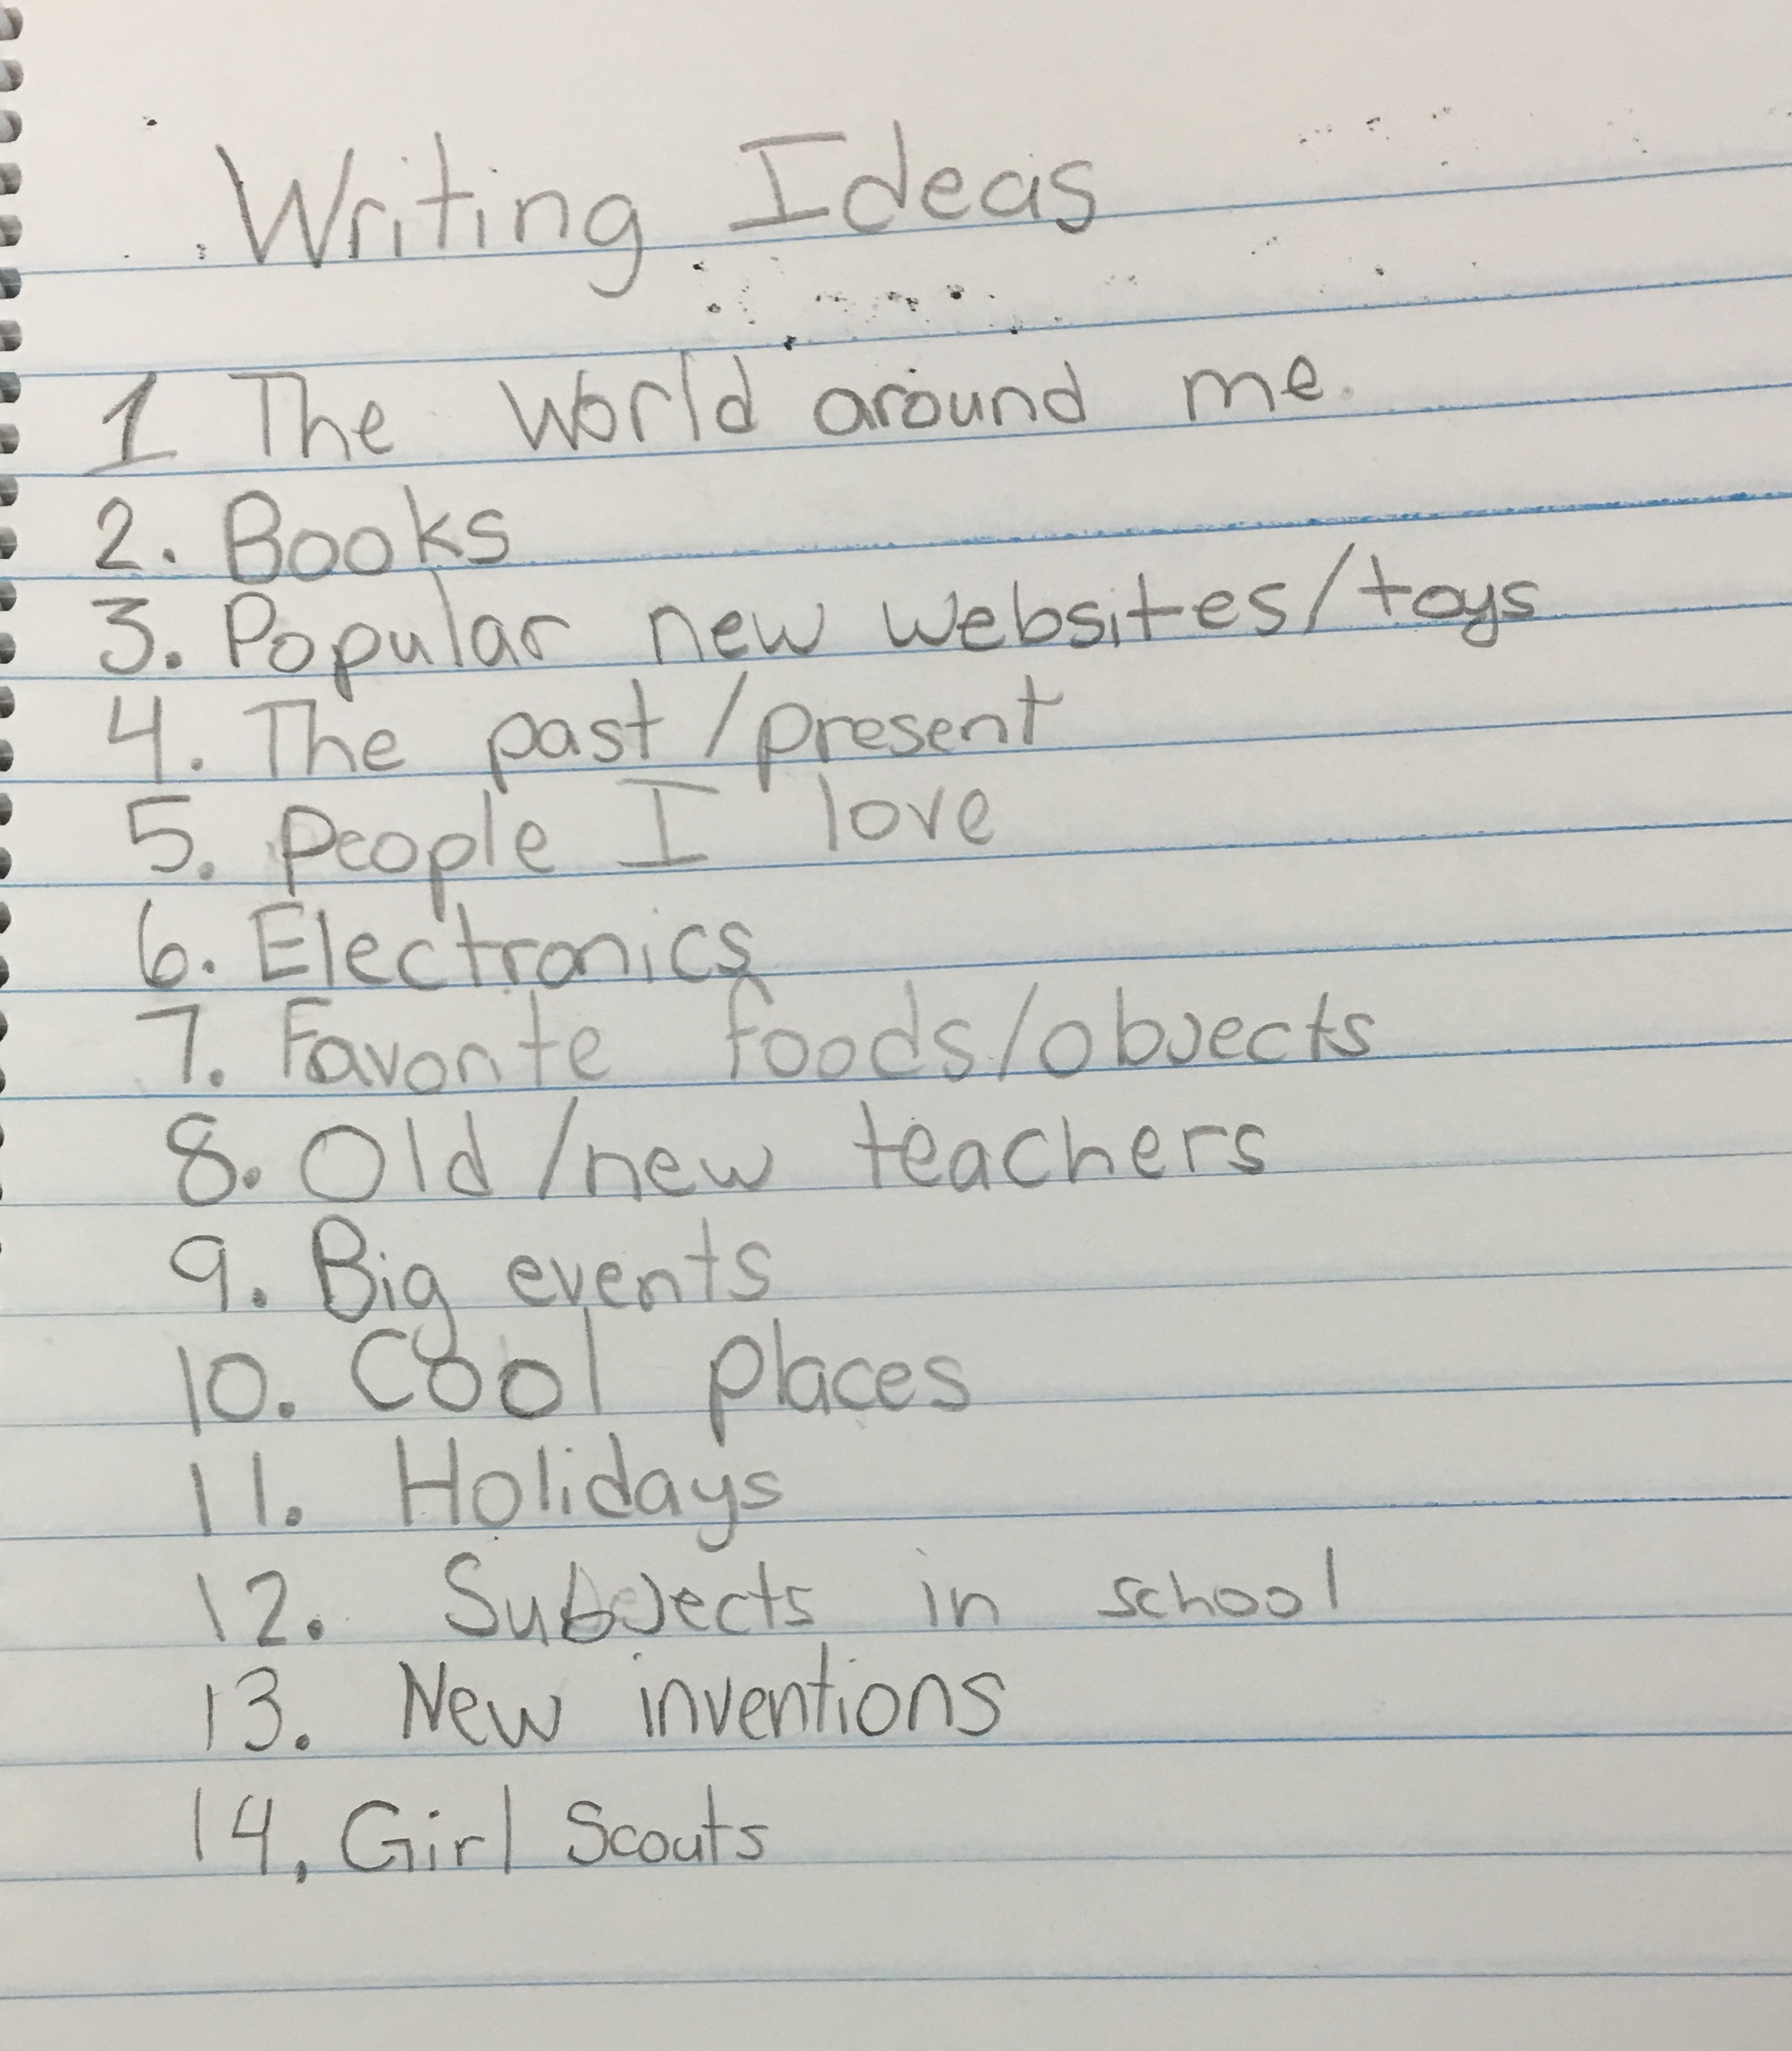 Writing Ideas
1 The world around me.
2. Books
3. Popular new websites/toys
4. The past/present
5. People I love
6. Electronics
7. Favorite foods/objects
8. Old/new teachers
9. Big events
10. Cool places
11. Holidays
12. Subjects in school
13. New inventions
14, Girl Scouts